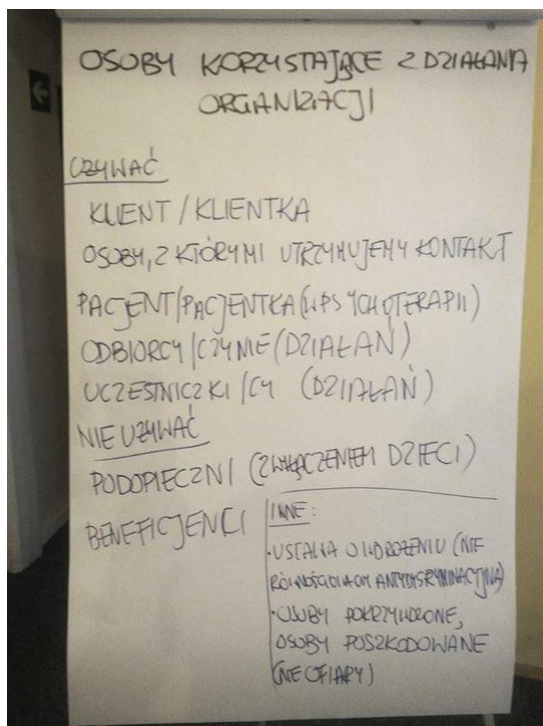 OSOBY KORZYSTAJĄCE Z DZIAŁANIA
ORGANIZACJI
UŻYWAĆ
KLIENT / KLIENTKA
OSOBY, Z KTÓRYMI UTRZYMUJEMY KONTAKT
PACJENT/PACJENTKA (W PSYCHOTERAPII)
ODBIORCY/CZYNIE (DZIAŁAŃ)
UCZESTNICZKI/CY (DZIAŁAŃ)
NIE UŻYWAĆ
PODOPIECZNI (Z WYŁĄCZENIEM DZIECI)
BENEFICJENCI
INNE:
• USTAWA O WDROŻENIU (NIE
RÓWNOŚCIOWA CZY ANTYDYSKRYMINACYJNA)
• OSOBY POKRZYWDZONE,
OSOBY POSZKODOWANE
(NIE OFIARY)